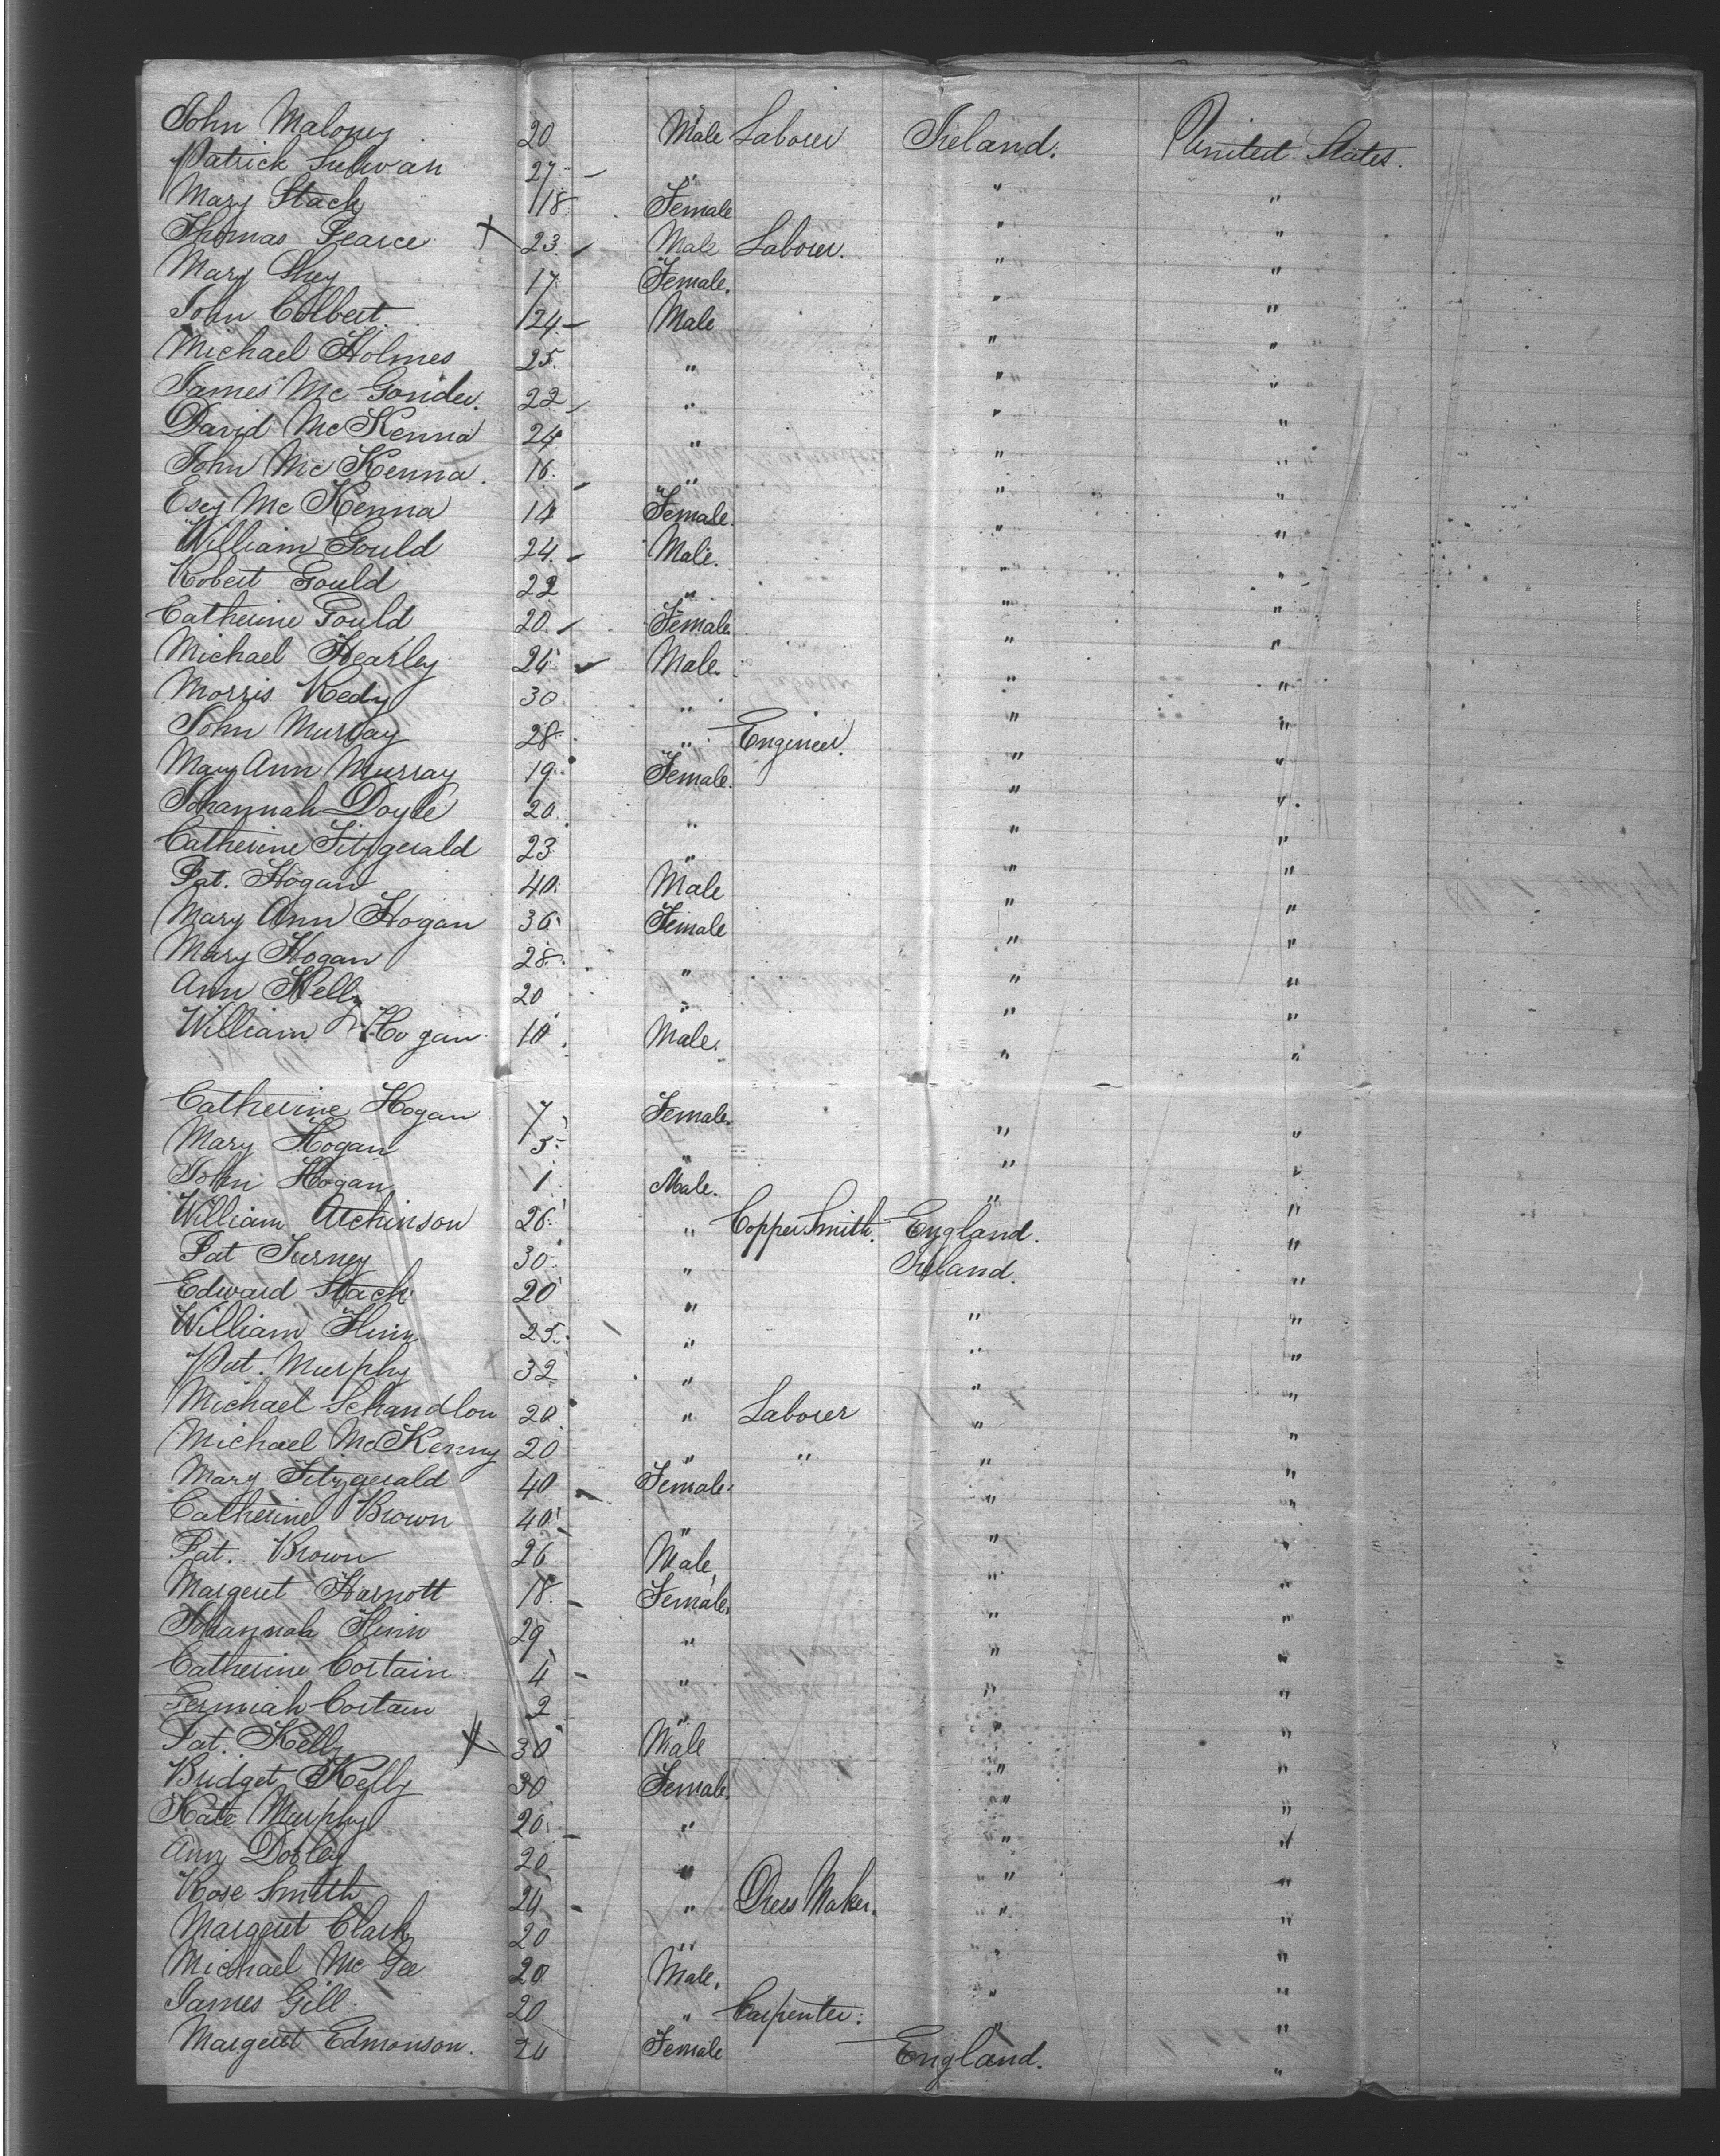 John Maloney 20 Male Laborer Ireland. United States.
Patrick Sulivan 27 " " "
Mary Stack 18 Female " "
Thomas Pearce 23 Male Laborer. " "
Mary Shey 17 Female. " "
John Colbert 24 Male " "
Michael Holmes 25 " " "
James Mc Gonder. 22 " " "
David McKenna 24 " " "
John Mc Kenna. 16 " " "
Esey Mc Kenna 14 Female. " "
William Gould 24 Male. " "
Robert Gould 22 " " "
Catherine Gould 20 Female. " "
Michael Hearley 24 Male. " "
Morris Kedy 30 " " "
John Murray 28 " Engineer. " "
Mary Ann Murray 19 Female. " "
Johannah Doyle 20 " " "
Catherine Fitzgerald 23 " " "
Pat. Hogan 40 Male " "
Mary Ann Hogan 36 Female " "
Mary Hogan 28 " " "
Ann Kelly 20 " " "
William Hogan 10 Male. " "
Catherine Hogan 7 Female. " "
Mary Hogan 5 " " "
John Hogan 1 Male. " "
William Atchinson 26 " Copper Smith. England. "
Pat Turney 30 " Ireland. "
Edward Stack 20 " " "
William Flinn 25 " " "
Pat. Murphy 32 " " "
Michael Schandlon 20 " Laborer " "
Michael McKenny 20 " " " "
Mary Fitzgerald 40 Female. " "
Catherine Brown 40 " " "
Pat. Brown 26 Male, " "
Margeret Harnott 18 Female, " "
Johannah Flinn 29 " " "
Catherine Cortain 4 " " "
Jermiah Cortain 2 " " "
Pat. Kelly 30 Male " "
Bridget Kelly 30 Female. " "
Kate Murphy 20 " " "
Ann Dooley 20 " " "
Rose Smith 20 " Dress Maker. " "
Margeret Clark 20 " " "
Michael Mc Gee 20 Male, " "
James Gill 20 " Carpenter: " "
Margeret Edmonson. 24 Female England. "